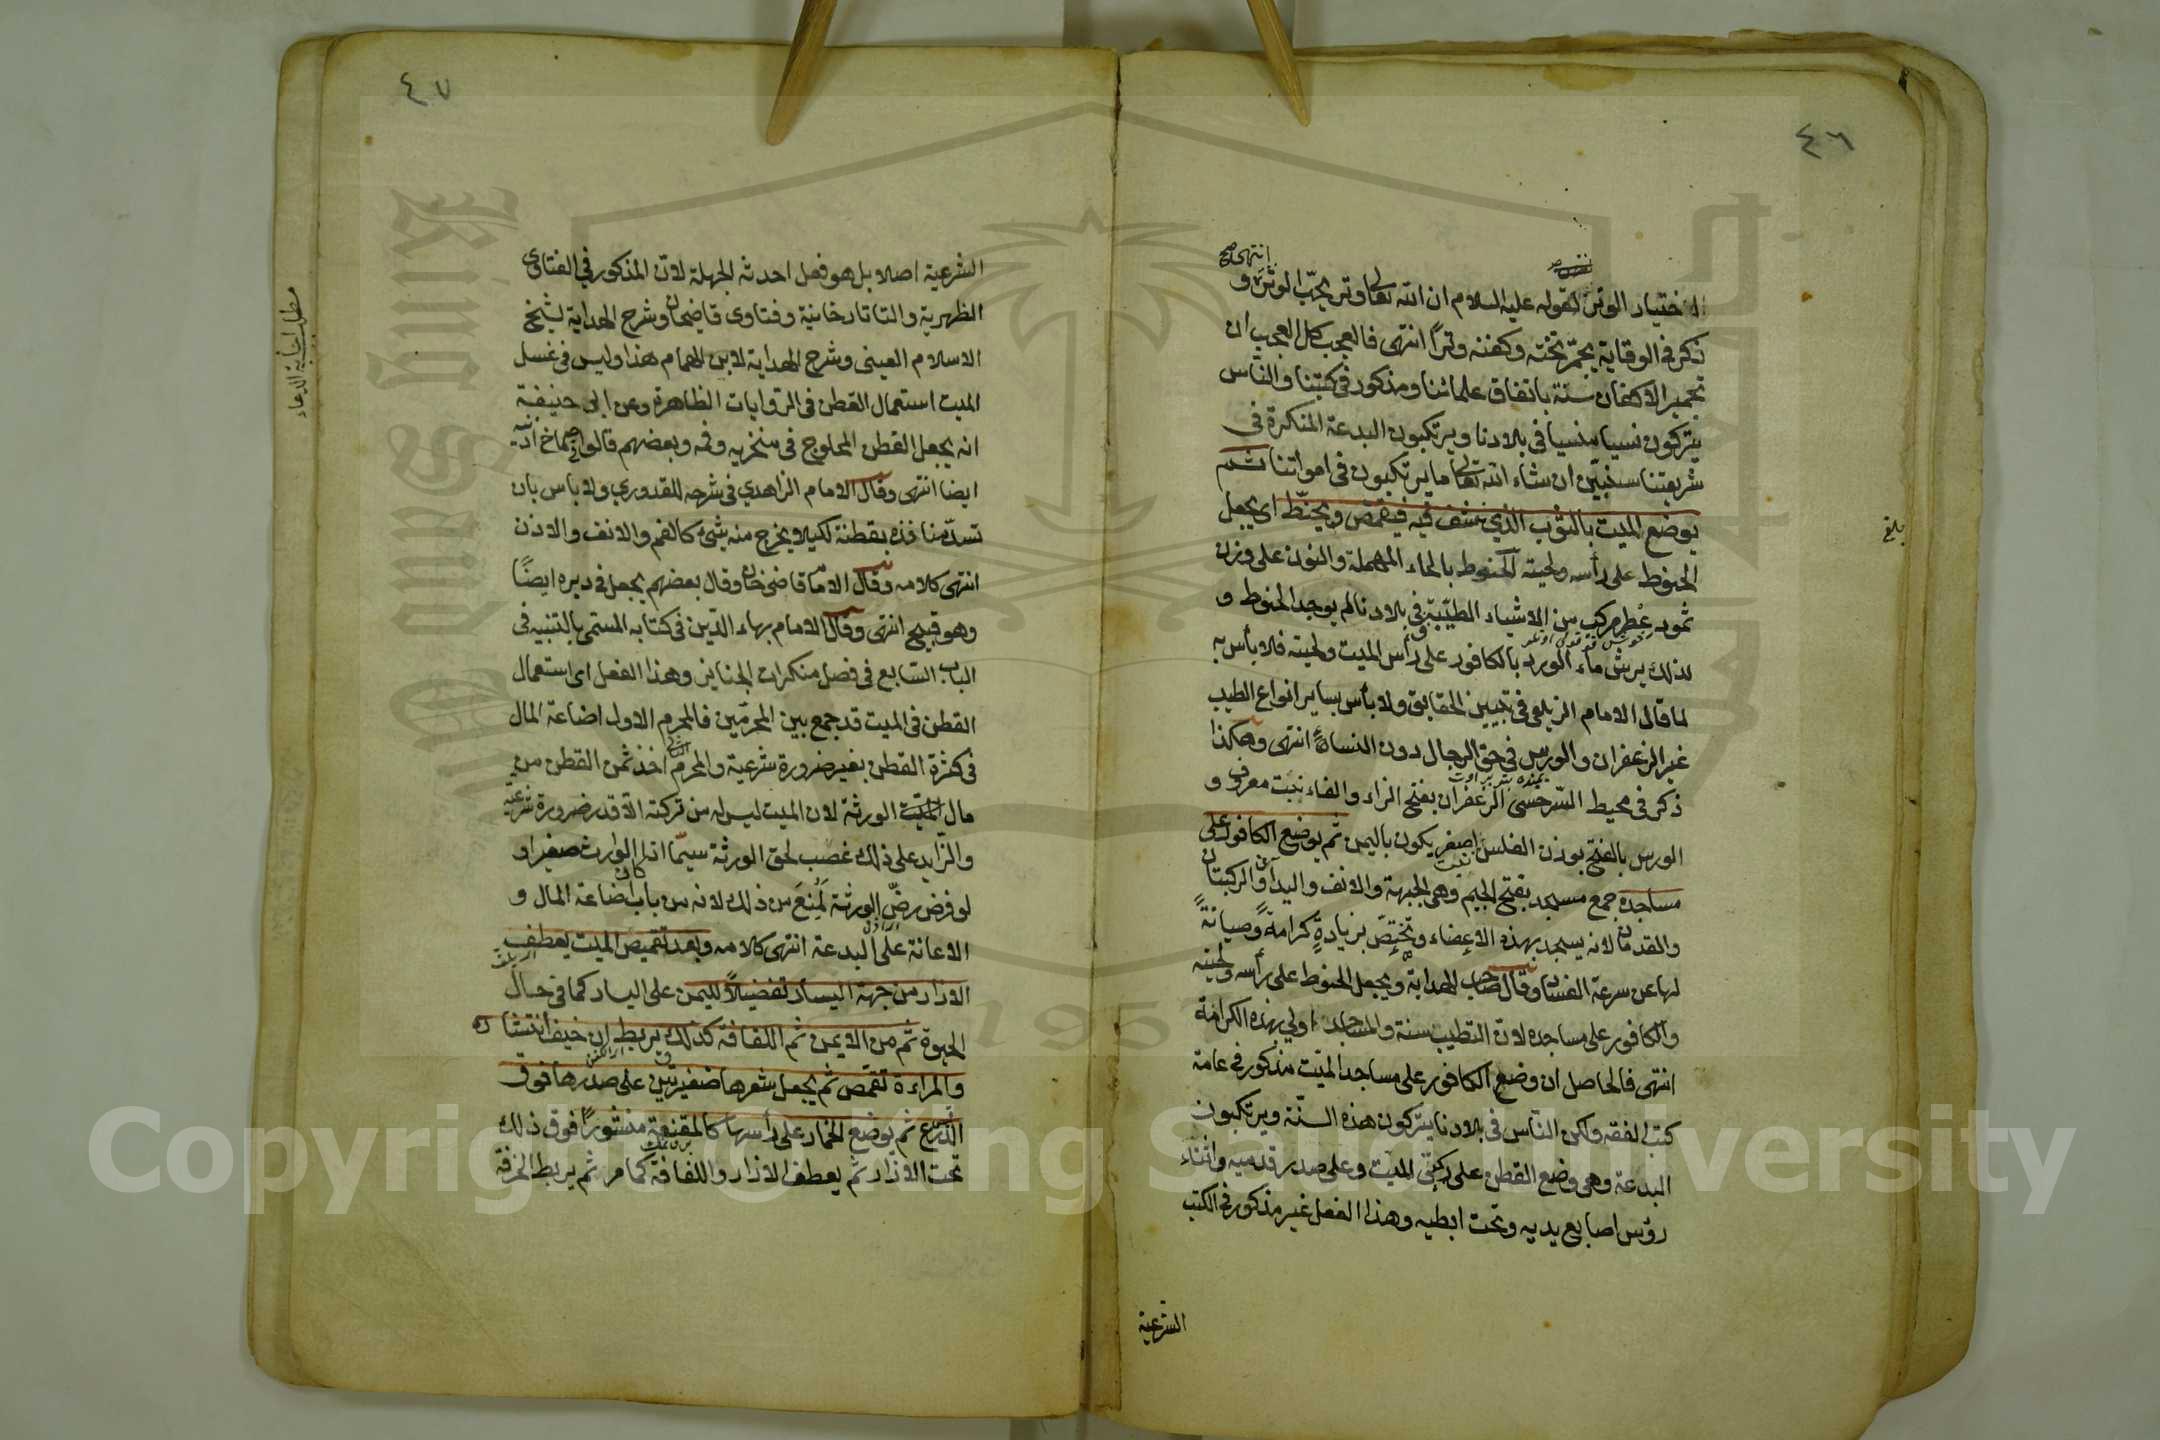 ٤٦
انتهى صح
لاختيار الوتر لقوله عليه السلام ان الله تعالى وتر يحبّ الوتر و
ذكر في الوقاية يجمّر تخته وكفنه وترًا انتهى فالعجب كل العجب ان
تجمير الاكفان سنّة باتفاق علمائنا ومذكور في كتبنا والناس
يتركون نسيا منسيا في بلادنا ويرتكبون البدعة المنكرة في
شريعتنا سنبيّن ان شاء الله تعالى ما يرتكبون في امواتنا ثم
يوضع الميت بالثوب الذي نشف فيه فيقمّص ويحنّط اى يجعل
بلغ
الحنوط على رأسه ولحيته الحنوط بالحاء المهملة والنون على وزن
ثمود عطر مركب من الاشياء الطيّبة في بلادنا لم يوجد الحنوط و
لذلك يرشّ ماء الورد بالكافور على رأس الميت ولحيته فلا بأس به
لما قال الامام الزيلعي في تبيين الحقايق ولا بأس بساير انواع الطيب
غير الزعفران والورس في حق الرجال دون النساء انتهى وهكذا
ذكر في محيط السّرخسى الزعفران بفتح الزاء والفاء نبت معروف و
الورس بالفتح بوزن الفلس نبت اصفر يكون باليمن ثم يوضع الكافور على
مساجده جمع مسجد بفتح الجيم وهى الجبهة والانف واليدان والركبتان
والقدمان لانه يسجد بهذه الاعضاء وتختصّ بزيادةٍ كرامةً وصيانةً
لها عن سرعة الفساد وقال صاحب الهداية ويجعل الحنوط على رأسه ولحيته
والكافور على مساجده لانّ التطيب سنة والمساجد اولى بهذه الكرامة
انتهى فالحاصل ان وضع الكافور على مساجد الميّت مذكور في عامة
كتب الفقه ولكن النّاس في بلادنا يتركون هذه السنّة ويرتكبون
البدعة وهى وضع القطن على ركبتى الميّت وعلى صدر قدميه واثناء
رؤس اصابع يديه وتحت ابطيه وهذا الفعل غير مذكور في الكتب
الشرعية
٤٧
الشرعية اصلا بل هو فعل احدثه الجهلة لانّ المذكور في الفتاوى
الظهرية والتاتارخانية وفتاوى قاضيخان وشرح الهداية لشيخ
الاسلام العينى وشرح الهداية لابن الهمام هذا وليس في غسل
الميت استعمال القطن في الرّوايات الظاهرة وعن ابى حنيفة
انه يجعل القطن المحلوج في منخريه وفمه وبعضهم قالوا صماخ اذنيه
ايضا انتهى وقال الامام الزاهدي في شرحه للقدوري ولا باس بان
تسدّ منافذه بقطنة لكيلا يخرج منه شئ كالفم والانف والاذن
انتهى كلامه وقال الامام قاضى خان وقال بعضهم يجعل في دبره ايضًا
وهو قبيح انتهى وقال الامام بهاء الدّين في كتابه المسمّى بالتنبيه في
الباب السّابع في فصل منكرات الجنايز وهذا الفعل اى استعمال
القطن في الميت قد جمع بين المحرّمين فالمحرم الاول اضاعة المال
في كثرة القطن بغير ضرورة شرعية والمحرم الثانى اخذ ثمن القطن من
مال الورثة لان الميت ليس له من تركته الّا قدر ضرورة شرعية
والزايد على ذلك غصب لحق الورثة سيمّا اذا كان الوارث صغيرا و
لو فرض رضّ الورثة لَمُنِعَ من ذلك لانه من باب اضاعة المال و
الاعانة على البدعة انتهى كلامه وبعد تقميص الميت يعطف
الازار من جهة اليسار تفضيلاً لليمين على اليسار كما في حال
الحيوة ثم من الايمن ثم اللفافة كذلك يربط ان خيف انتشاره
والمراءة تقمّص ثم يجعل شعرها ضفيرتين على صدرها فوق
الدّرع ثم يوضع الخمار على رأسها كالمقنعة منشورًا فوق ذلك
تحت الازار ثم يعطف الازار واللفافة كما مر ثم يربط الخرقة
King Saud University
1957
Copyright © King Saud University